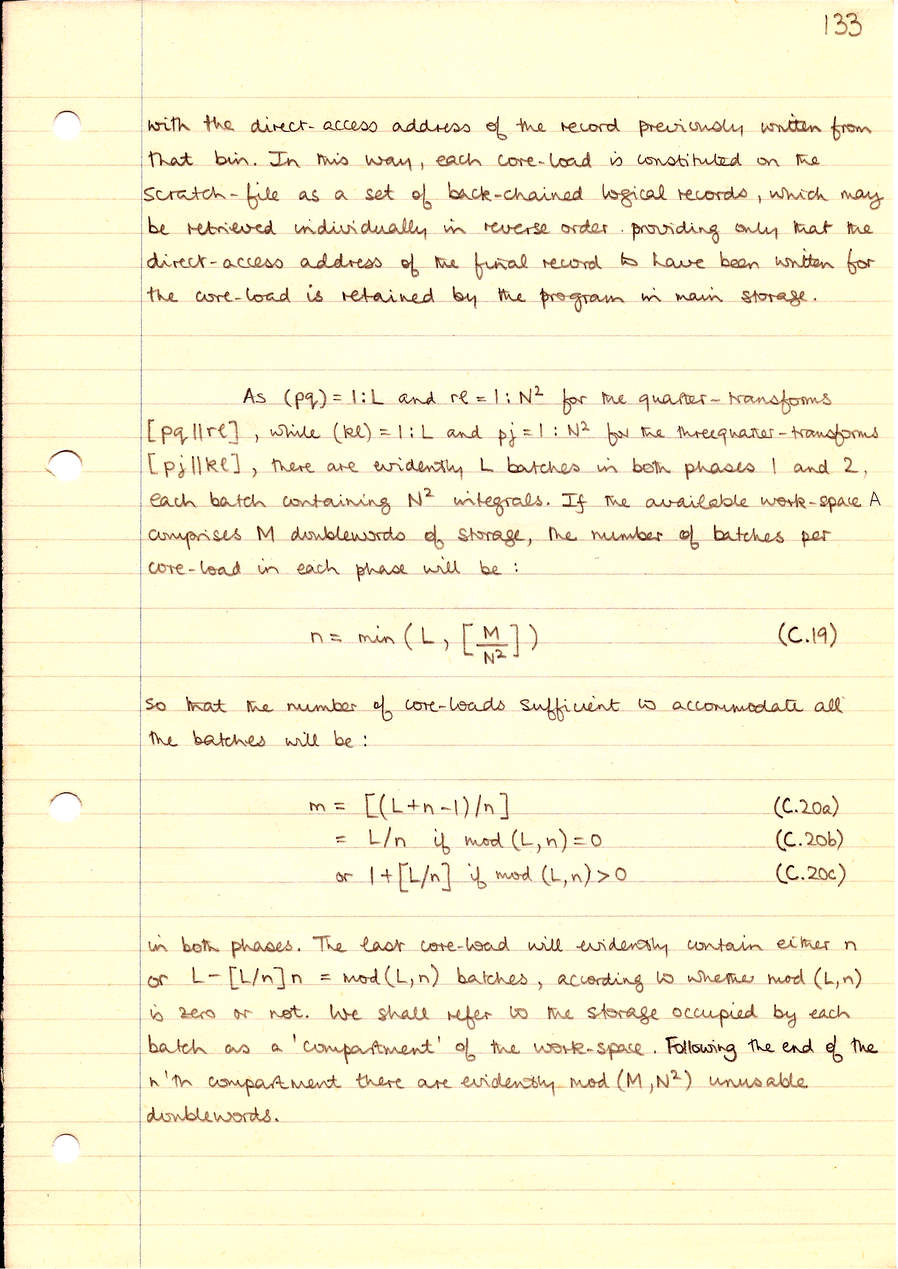 133
with the direct-access address of the record previously written from
that bin. In this way, each core-load is constituted on the
scratch-file as a set of back-chained logical records, which may
be retrieved individually in reverse order providing only that the
direct-access address of the final record to have been written for
the core-load is retained by the program in main storage.
As (pq) = 1:L and rl = 1:N² for the quarter-transforms
[pq||rl], while (kl) = 1:L and pj = 1:N² for the threequarter-transforms
[pj||kl], there are evidently L batches in both phases 1 and 2,
each batch containing N² integrals. If the available work-space A
comprises M doublewords of storage, the number of batches per
core-load in each phase will be:
n = min (L, [M/N²]) (C.19)
so that the number of core-loads sufficient to accommodate all
the batches will be:
m = [(L+n-1)/n] (C.20a)
= L/n if mod (L,n) = 0 (C.20b)
or 1+[L/n] if mod (L,n) > 0 (C.20c)
in both phases. The last core-load will evidently contain either n
or L-[L/n]n = mod(L,n) batches, according to whether mod (L,n)
is zero or not. We shall refer to the storage occupied by each
batch as a 'compartment' of the work-space. Following the end of the
n'th compartment there are evidently mod (M,N²) unusable
doublewords.